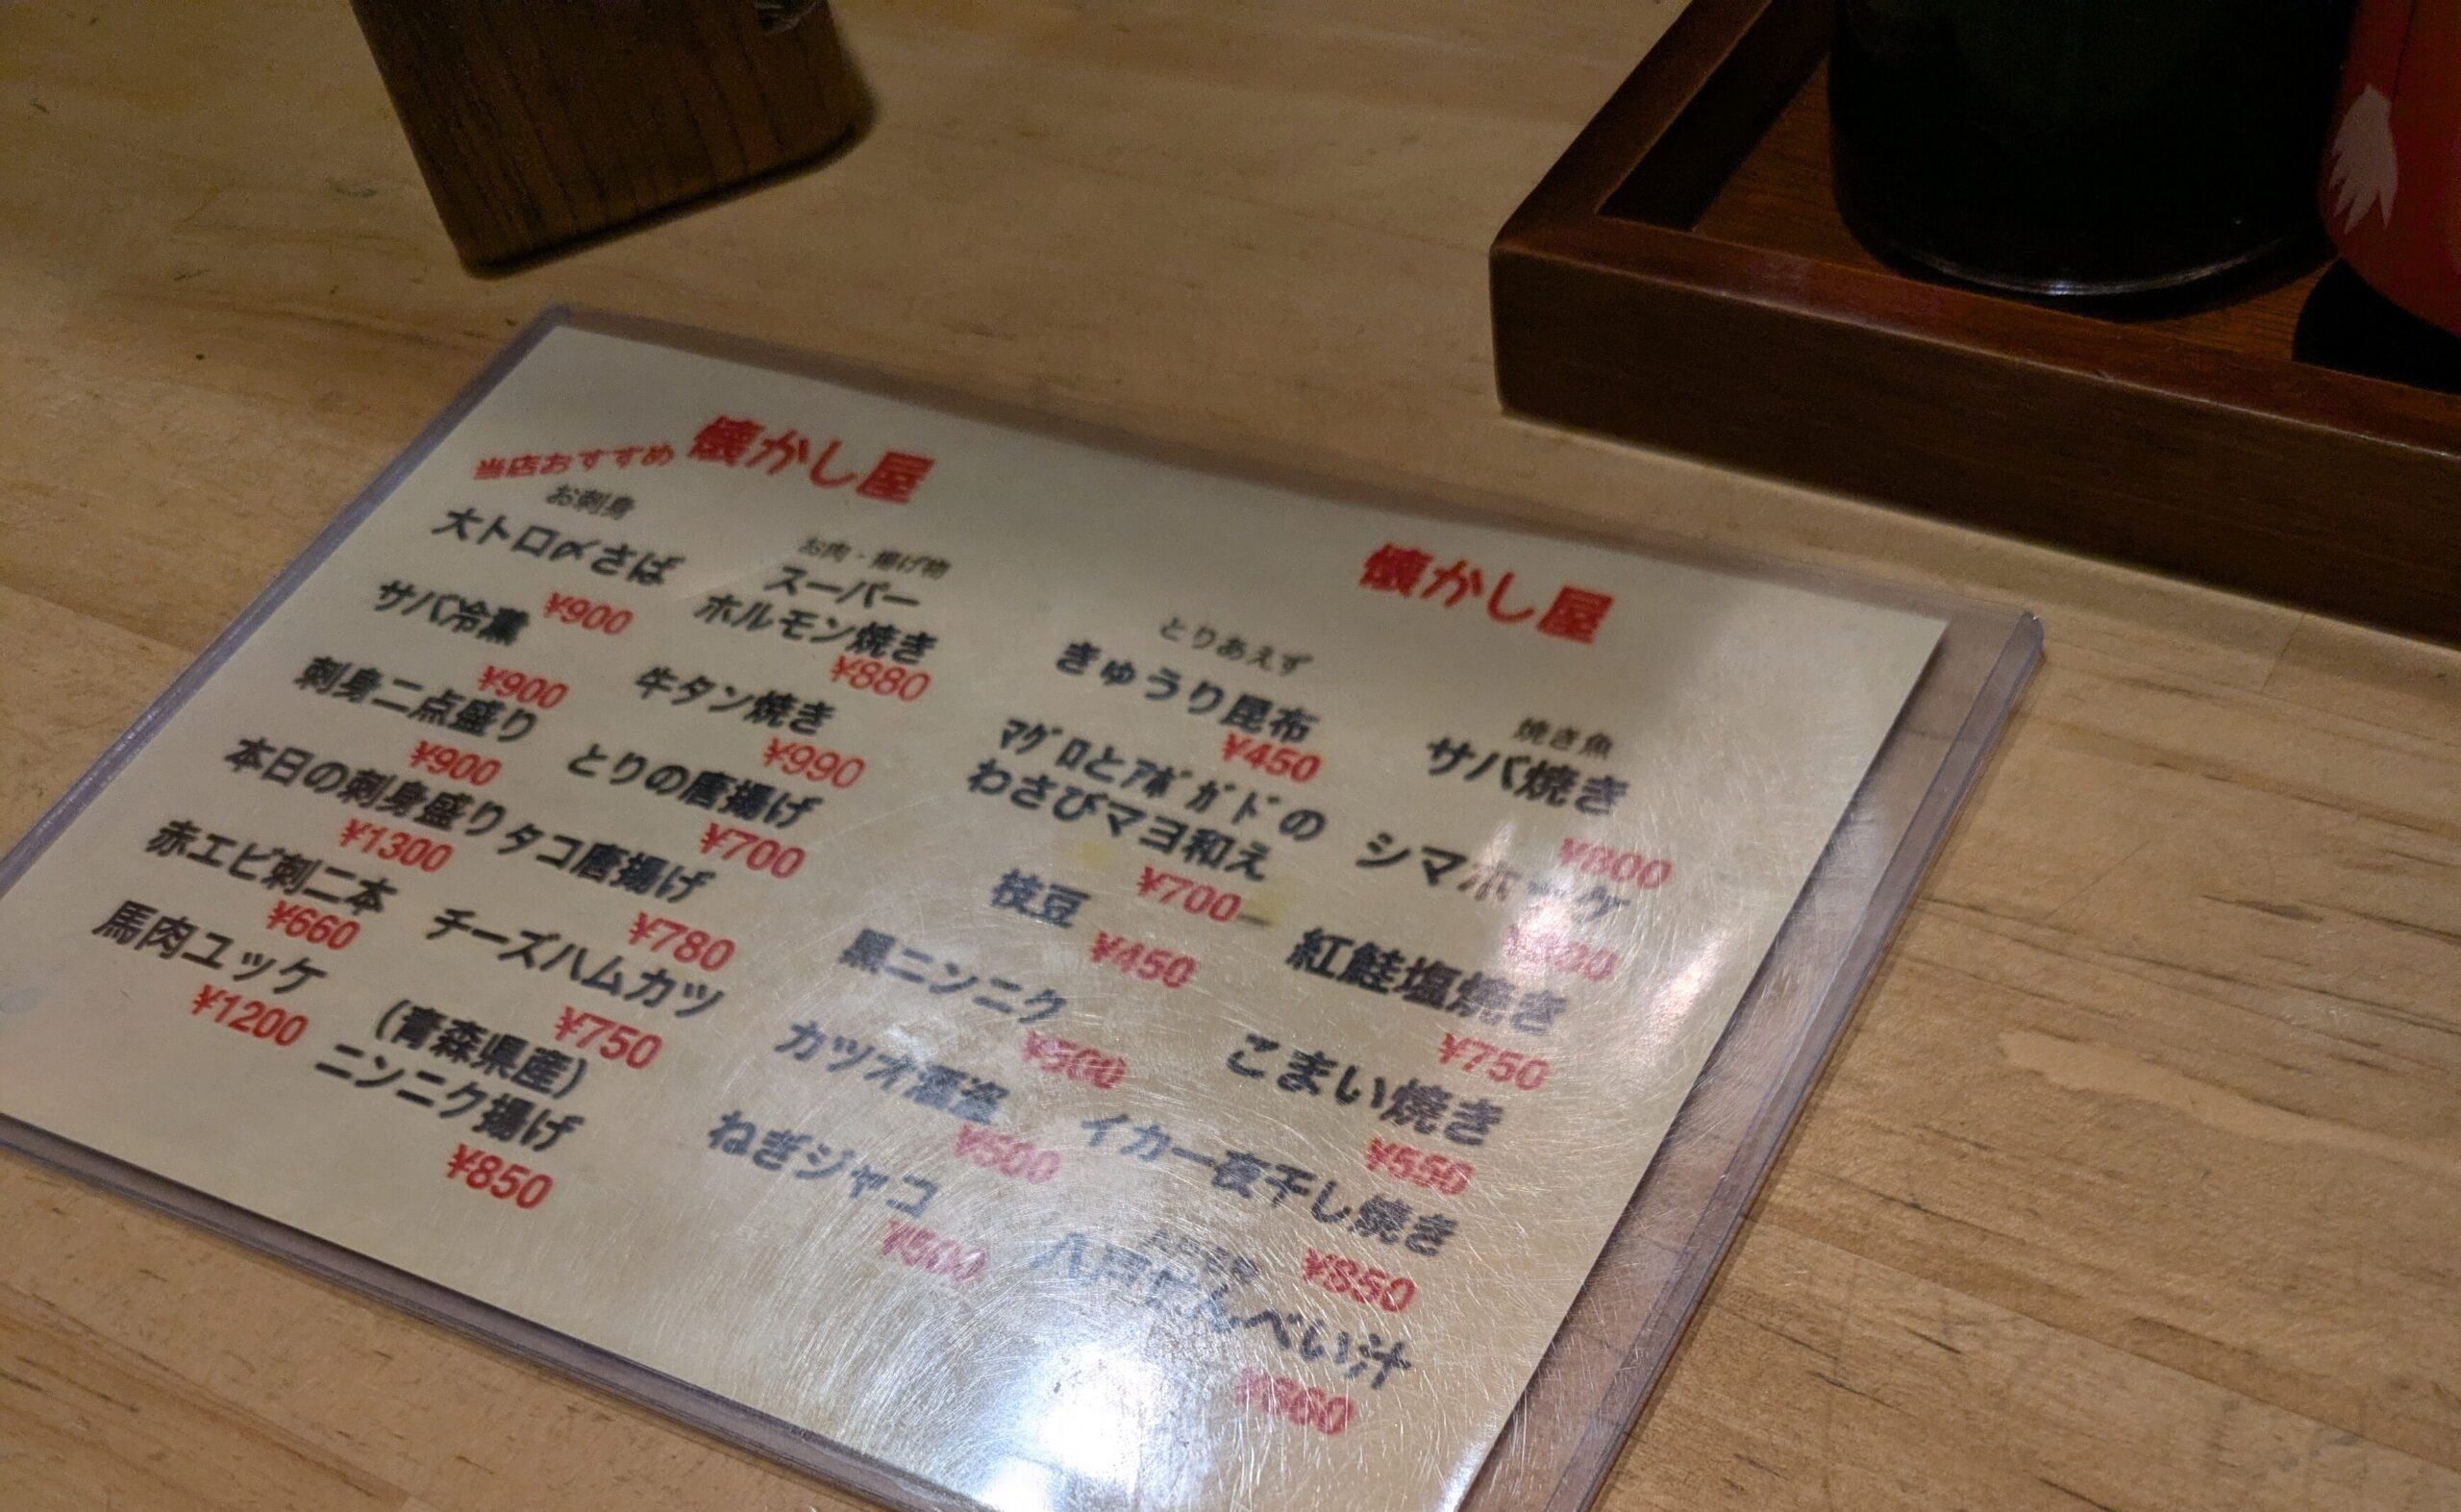 当店おすすめ
懐かし屋
お刺身
大トロ〆さば
¥900
サバ冷薫
¥900
刺身二点盛り
¥900
本日の刺身盛り
¥1300
赤エビ刺二本
¥660
馬肉ユッケ
¥1200
お肉・揚げ物
スーパー
ホルモン焼き
¥880
牛タン焼き
¥990
とりの唐揚げ
¥700
タコ唐揚げ
¥780
チーズハムカツ
¥750
(青森県産)
ニンニク揚げ
¥850
懐かし屋
とりあえず
きゅうり昆布
¥450
ﾏｸﾞﾛとｱﾎﾞｶﾞﾄﾞの
わさびマヨ和え
¥700
枝豆
¥450
黒ニンニク
¥500
カツオ酒盗
¥500
ねぎジャコ
¥500
焼き魚
サバ焼き
¥800
シマホッケ
紅鮭塩焼き
¥750
こまい焼き
¥550
イカ一夜干し焼き
¥850
八戸せんべい汁